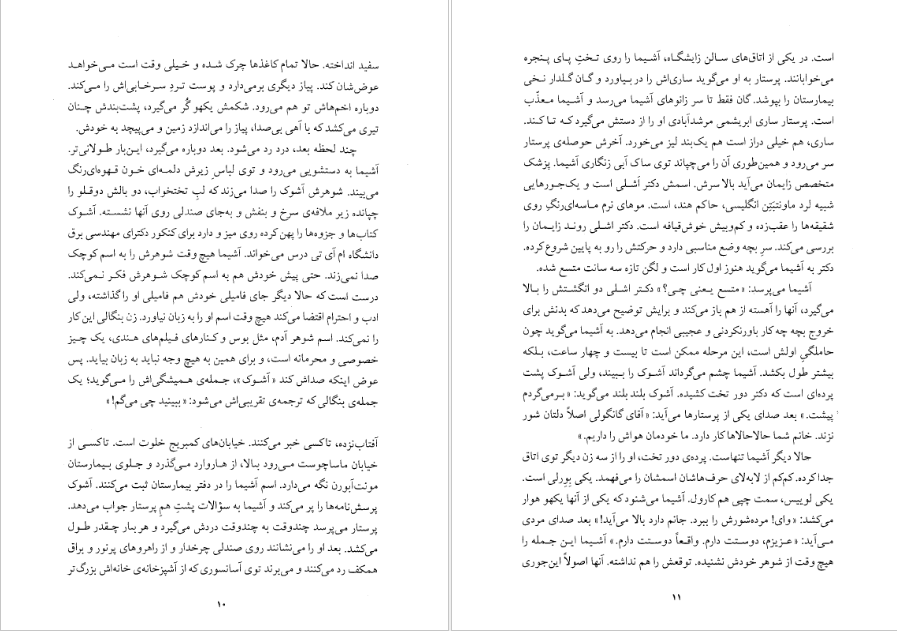 سفید انداخته. حالا تمام کاغذها چرک شده و خیلی وقت است می‌خواهد
عوض‌شان کند. پیاز دیگری برمی‌دارد و پوست تردِ سرخابی‌اش را می‌کند.
دوباره اخم‌هاش تو هم می‌رود. شکمش یکهو گُر می‌گیرد، پشت‌بندش چنان
تیری می‌کشد که با آهی بی‌صدا، پیاز را می‌اندازد زمین و می‌پیچد به خودش.
چند لحظه بعد، درد رد می‌شود. بعد دوباره می‌گیرد، این‌بار طولانی‌تر.
آشیما به دستشویی می‌رود و توی لباس زیرش دلمه‌ای خون قهوه‌ای‌رنگ
می‌بیند. شوهرش آشوک را صدا می‌زند که لبِ تختخواب، دو بالش دوقلو را
چپانده زیر ملافه‌ی سرخ و بنفش و به‌جای صندلی روی آنها نشسته. آشوک
کتاب‌ها و جزوه‌ها را پهن کرده روی میز و دارد برای کنکور دکترای مهندسی برق
دانشگاه ام آی تی درس می‌خواند. آشیما هیچ وقت شوهرش را به اسم کوچک
صدا نمی‌زند. حتی پیش خودش هم به اسم کوچک شوهرش فکر نمی‌کند.
درست است که حالا دیگر جای فامیلی خودش هم فامیلی او را گذاشته، ولی
ادب و احترام اقتضا می‌کند هیچ وقت اسم او را به زبان نیاورد. زن بنگالی این کار
را نمی‌کند. اسم شوهر آدم، مثل بوس و کنارهای فیلم‌های هندی، یک چیز
خصوصی و محرمانه است، و برای همین به هیچ وجه نباید به زبان بیاید. پس
عوض اینکه صداش کند «آشوک»، جمله‌ی همیشگی‌اش را می‌گوید؛ یک
جمله‌ی بنگالی که ترجمه‌ی تقریبی‌اش می‌شود: «ببینید چی می‌گم!»
آفتاب‌نزده، تاکسی خبر می‌کنند. خیابان‌های کمبریج خلوت است. تاکسی از
خیابان ماساچوست می‌رود بالا، از هاروارد می‌گذرد و جلوی بیمارستان
مونت‌آبورن نگه می‌دارد. اسم آشیما را در دفتر بیمارستان ثبت می‌کنند. آشوک
پرسش‌نامه‌ها را پر می‌کند و آشیما به سؤالات پشتِ هم پرستار جواب می‌دهد.
پرستار می‌پرسد چندوقت به چندوقت دردش می‌گیرد و هر بار چقدر طول
می‌کشد. بعد او را می‌نشانند روی صندلی چرخدار و از راهروهای پرنور و براق
همکف رد می‌کنند و می‌برند توی آسانسوری که از آشپزخانه‌ی خانه‌اش بزرگ‌تر
۱۰
است. در یکی از اتاق‌های سالن زایشگاه، آشیما را روی تختِ پای پنجره
می‌خوابانند. پرستار به او می‌گوید ساری‌اش را در بیاورد و گـان گلدار نخی
بیمارستان را بپوشد. گان فقط تا سر زانوهای آشیما می‌رسد و آشیما معذّب
است. پرستار ساری ابریشمی مرشدآبادی او را از دستش می‌گیرد که تا کند.
ساری، هم خیلی دراز است هم یک‌بند لیز می‌خورد. آخرش حوصله‌ی پرستار
سر می‌رود و همین‌طوری آن را می‌چپاند توی ساک آبی زنگاری آشیما. پزشک
متخصص زایمان می‌آید بالا سرش. اسمش دکتر آشلی است و یک‌جورهایی
شبیه لرد ماونتبَتِن انگلیسی، حاکم هند، است. موهای نرم ماسه‌ای‌رنگِ روی
شقیقه‌ها را عقب‌زده و کم‌وبیش خوش‌قیافه است. دکتر اشلی رونـد زایمان را
بررسی می‌کند. سر بچه وضع مناسبی دارد و حرکتش را رو به پایین شروع کرده.
دکتر به آشیما می‌گوید هنوز اول کار است و لگن تازه سه سانت متسع شده.
آشیما می‌پرسد: «متسع یعنی چی؟» دکتر اشلی دو انگشتش را بالا
می‌گیرد، آنها را آهسته از هم باز می‌کند و برایش توضیح می‌دهد که بدنش برای
خروج بچه چه کار باورنکردنی و عجیبی انجام می‌دهد. به آشیما می‌گوید چون
حاملگیِ اولش است، این مرحله ممکن است تا بیست و چهار ساعت، بـلکه
بیشتر طول بکشد. آشیما چشم می‌گرداند آشوک را ببیند، ولی آشوک پشت
پرده‌ای است که دکتر دور تخت کشیده. آشوک بلند بلند می‌گوید: «برمی‌گردم
پیشت.» بعد صدای یکی از پرستارها می‌آید: «آقای گانگولی اصلاً دلتان شور
نزند. خانم شما حالاحالاها کار دارد. ما خودمان هواش را داریم.»
حالا دیگر آشیما تنهاست. پرده‌ی دور تخت، او را از سه زن دیگر توی اتاق
جدا کرده. کم‌کم از لابه‌لای حرف‌هاشان اسمشان را می‌فهمد. یکی بِوِرلی است.
یکی لوییس، سمت چپی هم کارول. آشیما می‌شنود که یکی از آنها یکهو هوار
می‌کشد: «وای! مرده‌شورش را ببرد. جانم دارد بالا می‌آید!» بعد صدای مردی
می‌آید: «عزیزم، دوستت دارم. واقعاً دوستت دارم.» آشیما این جمله را
هیچ وقت از شوهر خودش نشنیده. توقعش را هم نداشته. آنها اصولاً این‌جوری
۱۱